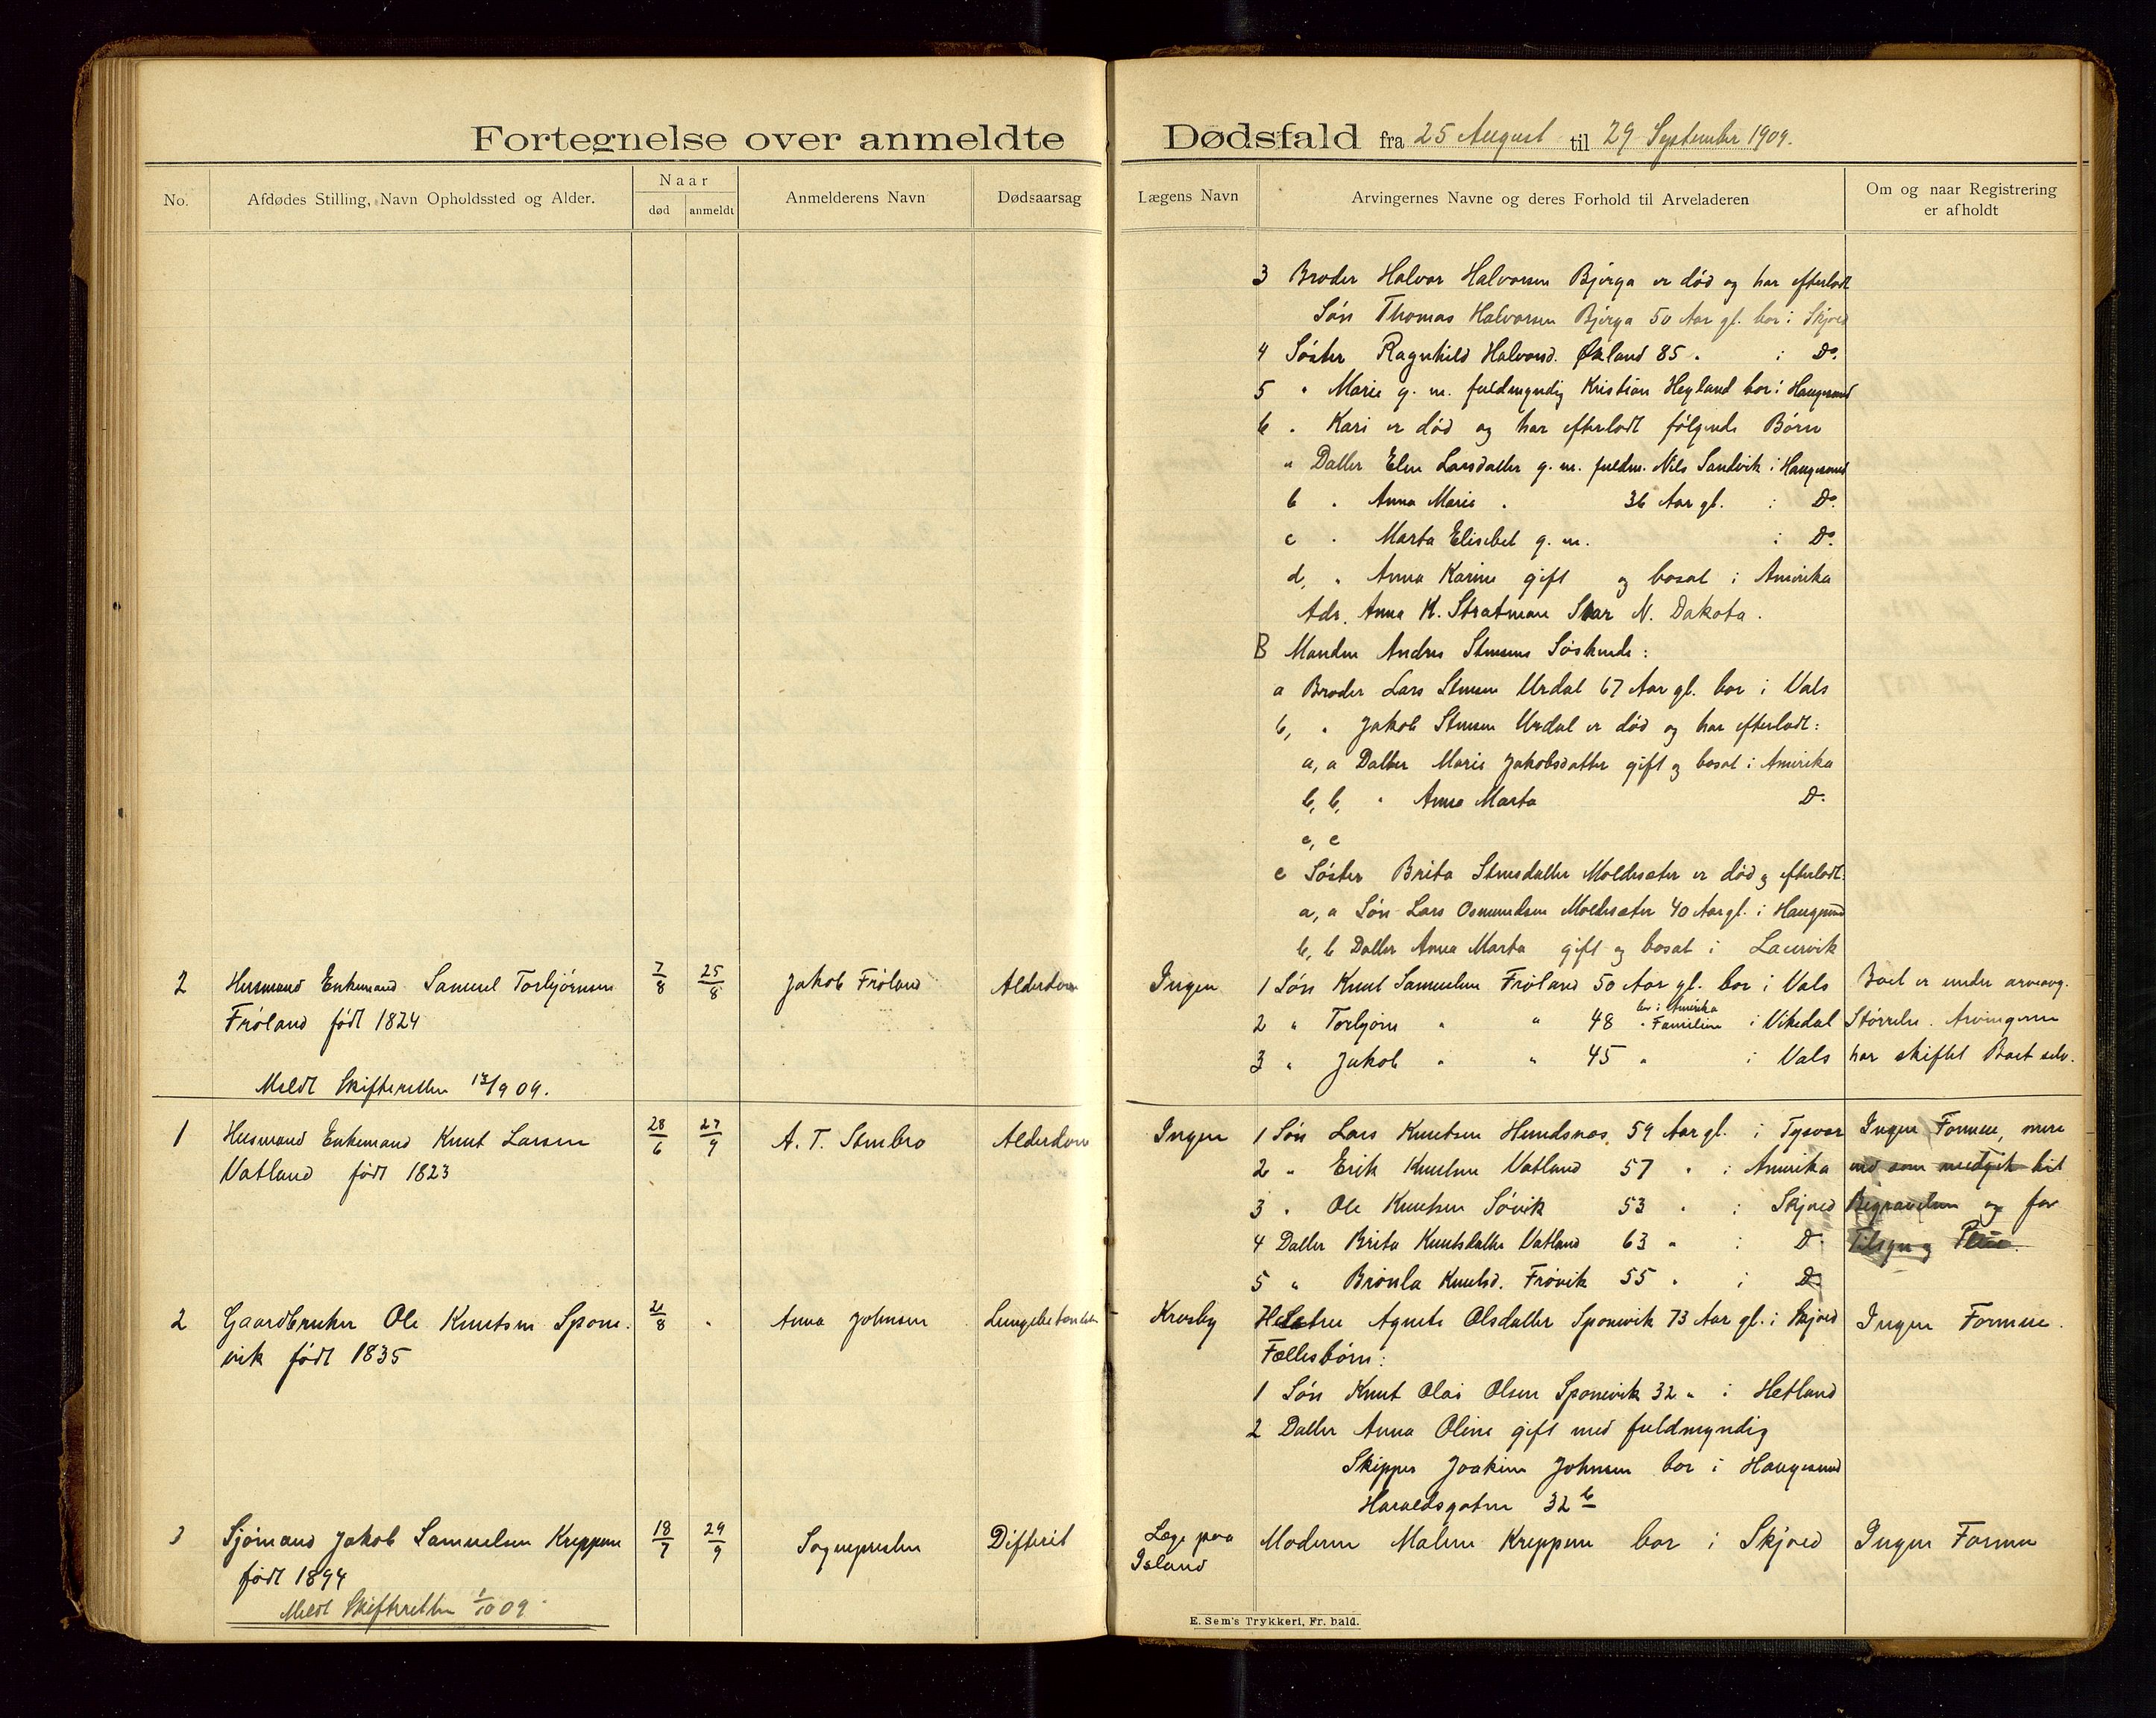 Fortegnelse over anmeldte Dødsfald fra 25 August til 29 September 1909.
No.
Afdødes Stilling, Navn Opholdssted og Alder.
Naar
død
anmeldt
Anmelderens Navn
Dødsaarsag
Lægens Navn
Arvingernes Navne og deres Forhold til Arveladeren
Om og naar Registrering
er afholdt
3 Broder Halvor Halvorsen Bjørga er død og har efterladt
Søn Thomas Halvorsen Bjørga 50 Aar gl. bor i Skjold
4 Søster Ragnhild Halvorsd. Økland 85 " i Do.
5 " Marie g. m. fuldmyndig Kristian Heyland bor i Haugesund
6 " Kari er død og har efterladt følgende Børn
a Datter Elen Larsdatter g. m. fuldm. Nils Sandvik i Haugesund
b " Anna Marie " 36 Aar gl. i Do.
c " Marta Elisebet g. m. i Do.
d, " Anna Karine gift og bosat i Amerika
Adr. Anna K. Stratman Star N. Dakota.
B Manden Andres Stensens Søskende:
a Broder Lars Stensen Urdal 67 Aar gl. bor i Vats
b, " Jakob Stensen Urdal er død og har efterladt:
a, a Datter Marie Jakobsdatter gift og bosat i Amerika
b, b, " Anna Marta Do.
c, c
c Søster Brita Stensdatter Moldesæter er død og efterladt:
a, a Søn Lars Osmundsen Moldesæter 40 Aar gl. i Haugesund
b, b Datter Anna Marta gift og bosat i Laurvik
2 Husmand Enkemand Samuel Torbjørnsen
Frøland født 1824
Meldt Skifteretten 13/9 09.
7/8
25/8
Jakob Frøland
Alderdom
Ingen
1 Søn Knut Samuelsen Frøland 50 Aar gl. bor i Vats
2 " Torbjørn " " 48 bor i Amerika " Familien i Vikedal
3 " Jakob " " 45 " i Vats
Boet er under arveavg.
Størrelse. Arvingerne
har skiftet Boet selv.
1 Husmand Enkemand Knut Larsen
Vatland født 1823
28/6
27/9
A. T. Stenbro
Alderdom
Ingen
1 Søn Lars Knutsen Hundsnæs 59 Aar gl. i Tysvær
2 " Erik Knutsen Vatland 57 " i Amerika
3 " Ole Knutsen Søvik 53 " i Skjold
4 Datter Brita Knutsdatter Vatland 63 " i Do.
5 " Brønla Knutsd. Frøvik 55 " i Do.
Ingen Formue, mere
end som medgik til
Begravelsen og for
Tilsyn og Pleie.
2 Gaardbruker Ole Knutsen Spone-
vik født 1835
21/8
"
Anna Johnsen
Lungebetændelse
Krosby
Hustru Agnete Olsdatter Sponevik 73 Aar gl. i Skjold
Fællesbørn:
1 Søn Knut Olai Olsen Sponevik 32 " i Hetland
2 Datter Anna Oline gift med fuldmyndig
Skipper Joakim Johnsen bor i Haugesund
Haraldsgaten 32 b
Ingen Formue.
3 Sjømand Jakob Samuelsen Kreppen
født 1894
Meldt Skifteretten 1/10 09
18/7
29/9
Sognepresten
Difterit
Læge paa
Island
Moderen Malene Kreppene bor i Skjold
Ingen Formue
E. Sem's Trykkeri, Fr.hald.